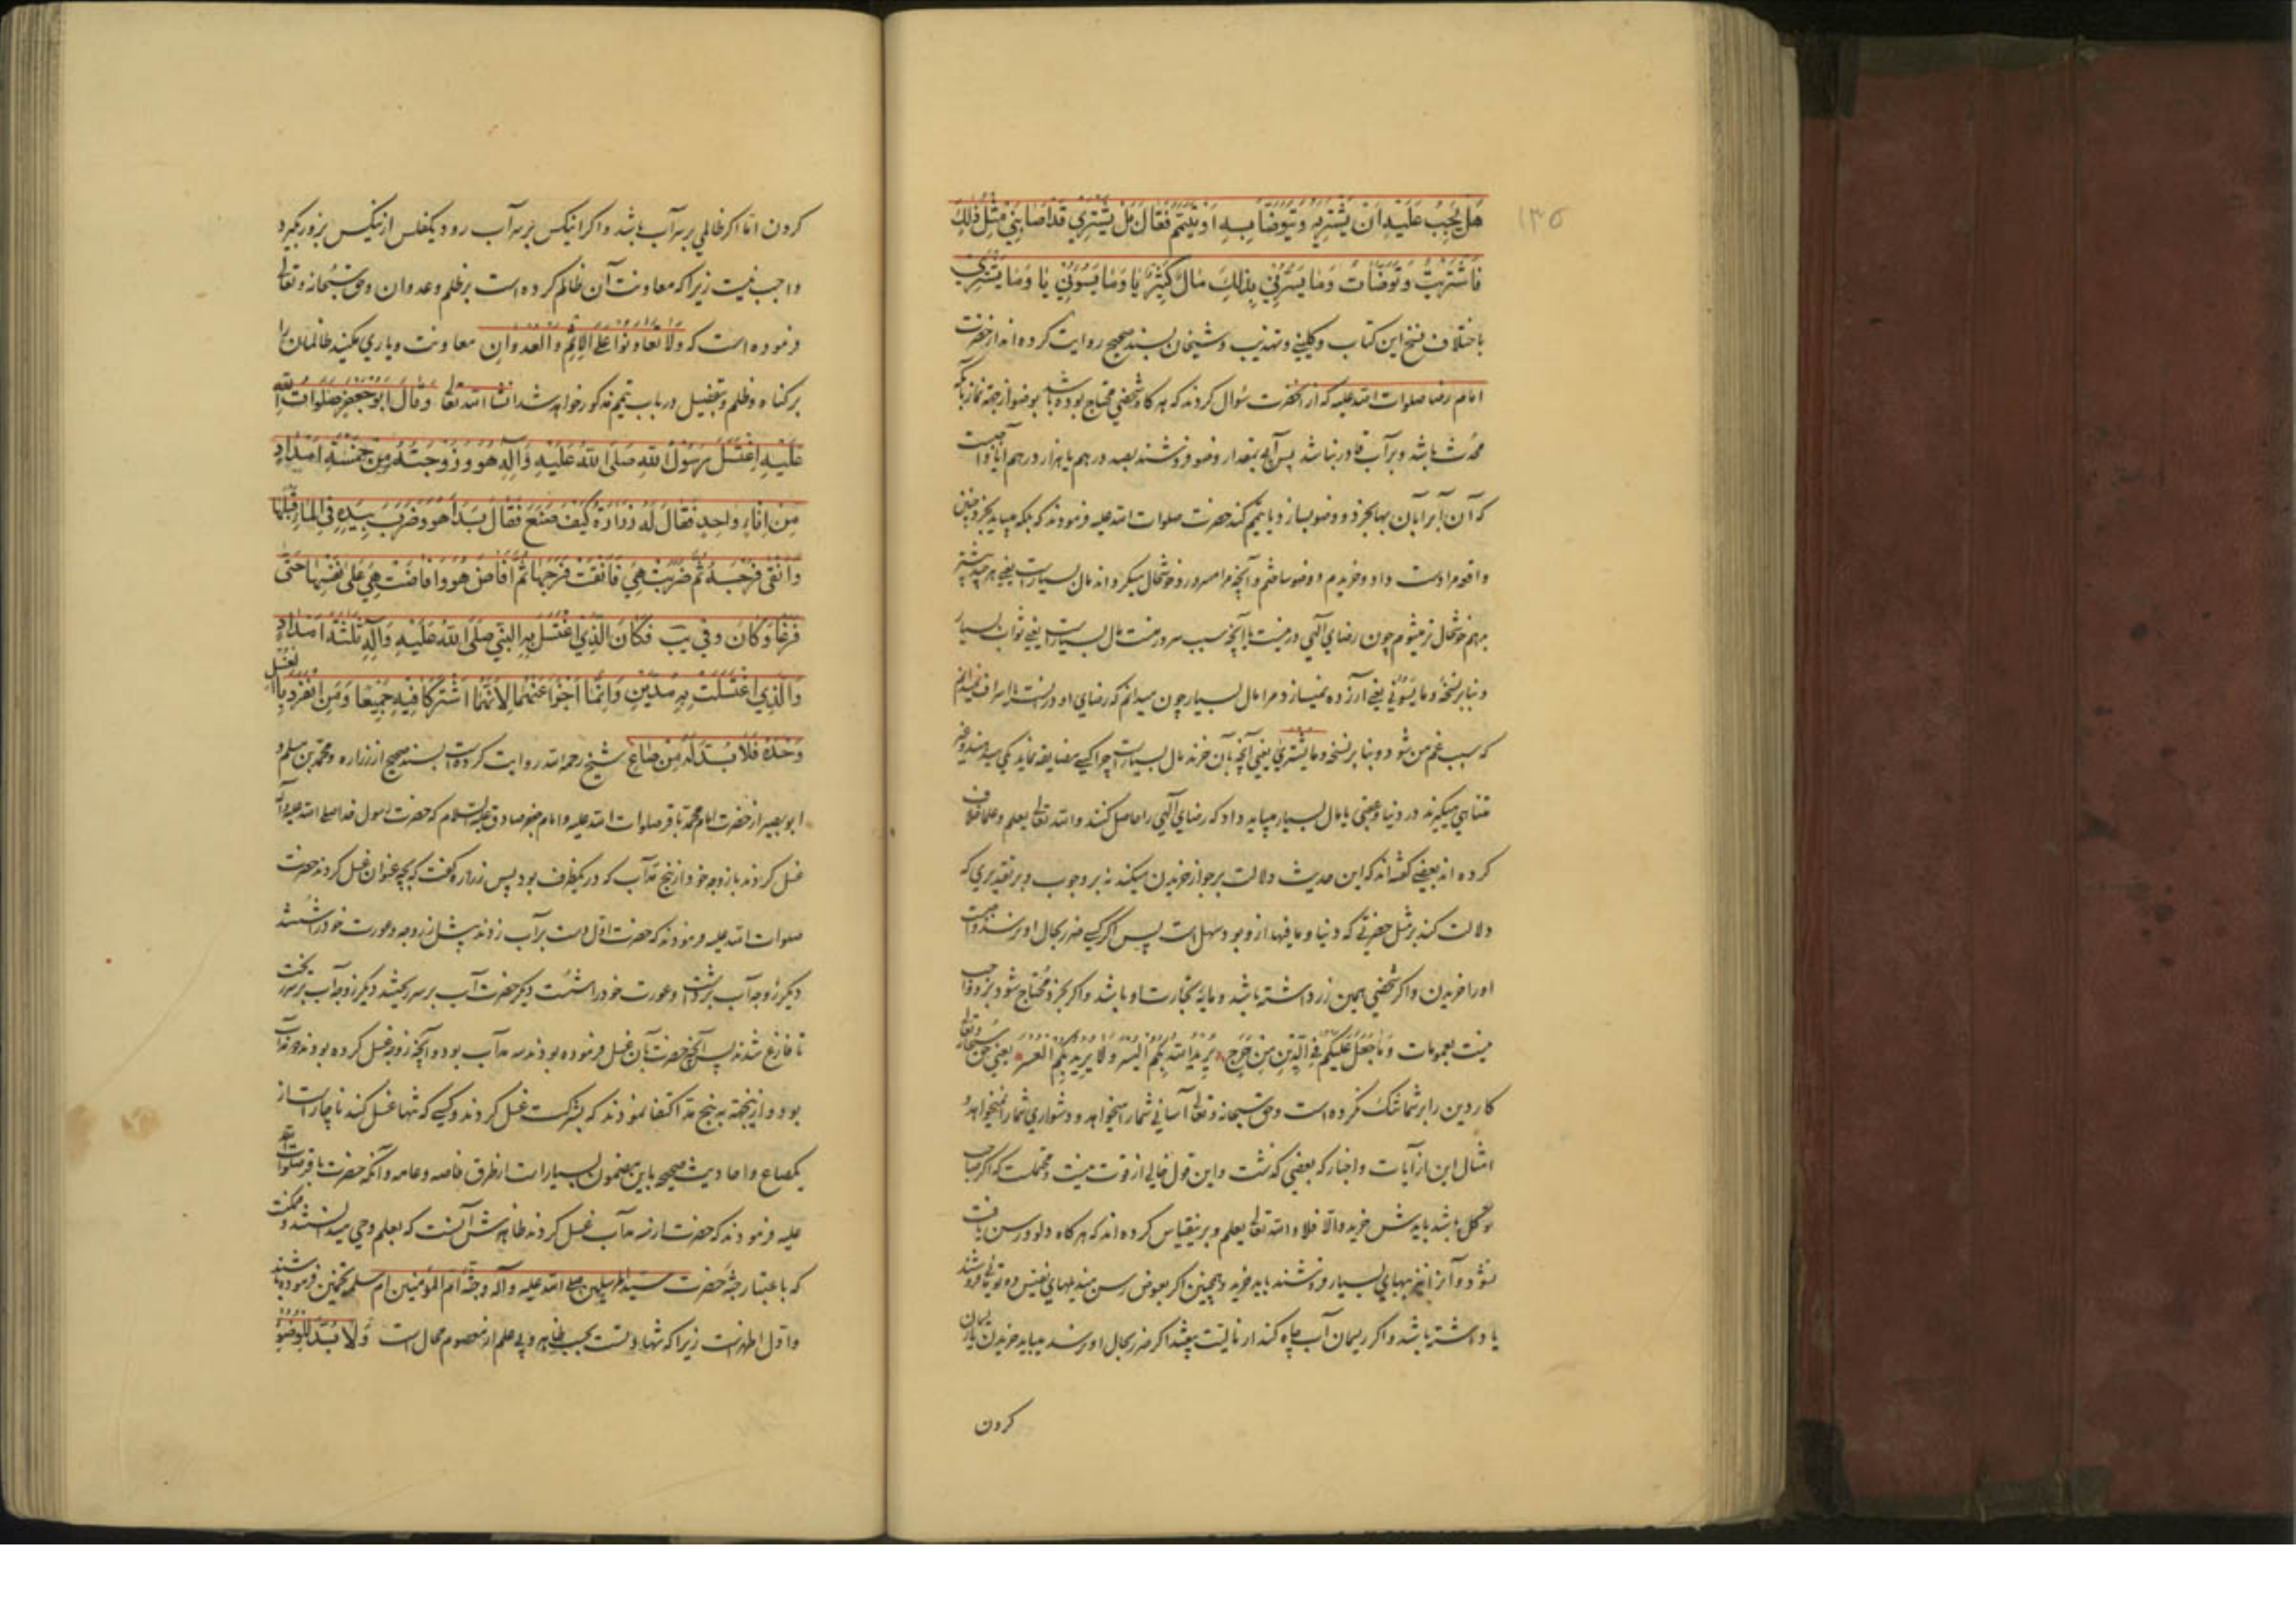 ١٣٥
هَلْ يَجِبُ عَلَيْهِ اَنْ يَشْتَرِيَهُ وَيَتَوَضَّأَ بِهِ اَوْ يَتَيَمَّمُ فَقَالَ بَلْ يَشْتَرِي قَدْ اَصَابَنِي مِثْلُ ذٰلِكَ
فَاشْتَرَيْتُ وَتَوَضَّأْتُ وَمَا يَسُرُّنِي بِذٰلِكَ مَالٌ كَثِيْرٌ يا وَمَا يَسُوْئُنِي يا وَمَا يَشْتَرِيْ
باختلاف نسخ این کتاب و کلینی و تهذیب و شیخان بسند صحیح روایت کرده اند از حضرت
امام رضا صلوات الله علیه که از آنحضرت سؤال کردند که هر گاه شخصی محتاج بوده باشد بوضو از جهة نماز با آنکه
محدث باشد و بر آب قادر نباشد پس آبی بمقدار وضو فروشند بصد درهم یا هزار درهم آیا واجبست
که آن آبرا بآن بها بخرد و وضو بسازد یا تیمم کند حضرت صلوات الله علیه فرمودند که بلکه میباید بخرد چنین
واقعه مرا دست داد و خریدم و وضو ساختم و آنچه مرا مسرور و خوشحال میکرداند مال بسیاریست یعنی هر چند بیشتر
میدهم خوشحال تر میشوم چون رضای الهی در منست یا آنچه سبب سرور منست مال بسیاریست یعنی ثواب بسیار
و بنا بر نسخه و ما یسوئنی یعنی آزرده نمیسازد مرا مال بسیار چون میدانم که رضای او در اینست یا اسراف نمیدانم
که سبب غم من شود و بنا بر نسخه و ما یشتری یعنی آنچه بآن خرند مال بسیاریست چرا کسی مضایقه نماید یکی میدهند و غیر
متناهی میکیرند در دنیا و عقبی یا مال بسیار میباید داد که رضای الهی را حاصل کنند و الله تعالی یعلم و علما خلاف
کرده اند بعضی گفته اند که این حدیث دلالت بر جواز خریدن میکند نه بر وجوب و بر تقدیری که
دلالت کند بر مثل حضرتی که دنیا و ما فیها نزد او سهل است پس اگر کسی ضرر بحال او نرسد واجبست
او را خریدن و اگر شخصی همین زر داشته باشد و مایۀ تجارت او باشد و اگر بخرد محتاج شود برو واجب
نیست بعمومات وَمَا جَعَلَ عَلَيْكُمْ فِي الدِّيْنِ مِنْ حَرَجٍ يُرِيْدُ اللهُ بِكُمُ الْيُسْرَ وَلَا يُرِيْدُ بِكُمُ الْعُسْرَ یعنی حق سبحانه و تعالی
کار دین را بر شما تنگ نکرده است و حق سبحانه و تعالی آسانی شما را میخواهد و دشواری شما را نمیخواهد و
امثال این از آیات و اخبار که بعضی گذشت و این قول خالی از قوت نیست و محتملست که اگر صاحب
توکل باشد بایدش خرید و الا فلا و الله تعالی یعلم و برینقیاس کرده اند که هر گاه دلو و رسن یافت
نشود و آنرا نیز ببهای بسیار فروشند باید خرید و همچنین اگر بعوض رسن مندیلهای نفیس دو توبی فروشند
یا داشته باشد و اگر ریسمان آب چاه کند از مالیت بیفتد اگر ضرر بحال او نرسد میباید خریدن یا ریسمان
کردن
کردن اما اگر ظالمی بر سر آب باشد و اگر اینکس بر سر آب رود یکفلس ازینکس بزور بگیرد
واجب نیست زیرا که معاونت آن ظالم کرده است بر ظلم و عدوان و حق سبحانه و تعالی
فرموده است که وَلَا تَعَاوَنُوْا عَلَى الْاِثْمِ وَالْعُدْوَانِ معاونت و یاری مکنید ظالمان را
بر کناه و ظلم و تفصیل در باب تیمم مذکور خواهد شد انشاء الله تعالی وَقَالَ اَبُوْ جَعْفَرٍ صَلَوَاتُ اللهِ
عَلَيْهِ اغْتَسَلَ رَسُوْلُ اللهِ صَلَّى اللهُ عَلَيْهِ وَآلِهِ هُوَ وَزَوْجَتُهُ مِنْ خَمْسَةِ اَمْدَادٍ
مِنْ اِنَاءٍ وَاحِدٍ فَقَالَ لَهُ زُرَارَةُ كَيْفَ صَنَعَ فَقَالَ بَدَأَ هُوَ وَضَرَبَ بِيَدِهِ فِي الْمَاءِ قَبْلَهَا
وَاَنْقٰى فَرْجَهُ ثُمَّ ضَرَبَتْ هِيَ فَاَنْقَتْ فَرْجَهَا ثُمَّ اَفَاضَ هُوَ وَاَفَاضَتْ هِيَ عَلٰى نَفْسِهَا حَتّٰى
فَرَغَا وَكَانَ وفی یب فَكَانَ الَّذِي اغْتَسَلَ بِهِ النَّبِيُّ صَلَّى اللهُ عَلَيْهِ وَآلِهِ ثَلٰثَةَ اَمْدَادٍ
وَالَّذِي اغْتَسَلَتْ بِهِ مُدَّيْنِ وَاِنَّمَا اَجْزَأَ عَنْهُمَا لِاَنَّهُمَا اشْتَرَكَا فِيْهِ جَمِيْعًا وَمَنِ انْفَرَدَ بِالْغُسْلِ
وَحْدَهُ فَلَا بُدَّ لَهُ مِنْ صَاعٍ شیخ رحمه الله روایت کرده است بسند صحیح از زراره و محمد بن مسلم و
ابو بصیر از حضرت امام محمد باقر صلوات الله علیه و امام جعفر صادق علیه السلام که حضرت رسول خدا صلی الله علیه و آله
غسل کردند با زوجه خود از پنج مد آب که در یکظرف بود پس زراره گفت که بچه عنوان غسل کردند حضرت
صلوات الله علیه فرمودند که حضرت اول دست بر آب زدند پیش از زوجه و عورت خود را شستند
دیگر زوجه آب برداشت و عورت خود را شست دیگر حضرت آب بر سر ریختند دیگر زوجه آب بر سر ریخت
تا فارغ شدند پس آنچه حضرت بآن غسل فرموده بودند سه مد آب بود و آنچه زوجه غسل کرده بودند دو مد آب
بود و ازینجهته به پنج مد اکتفا نمودند که بشرکت غسل کردند و کسی که تنها غسل کند ناچار است از
یکصاع و احادیث صحیحه باین مضمون بسیار است از طرق خاصه و عامه و آنکه حضرت باقر صلوات الله
علیه فرمودند که حضرت از سه مد آب غسل کردند ظاهرش آنست که بعلم وحی میدانستند و ممکنست
که باعتبار جثۀ حضرت سید المرسلین صلی الله علیه و آله و جثۀ ام المؤمنین ام سلمه تخمین فرموده باشند
و اول اظهر است زیرا که شهادتست بحسب ظاهر و بی علم از معصوم محال است وَلَا بُدَّ لِلْوُضُوْءِ